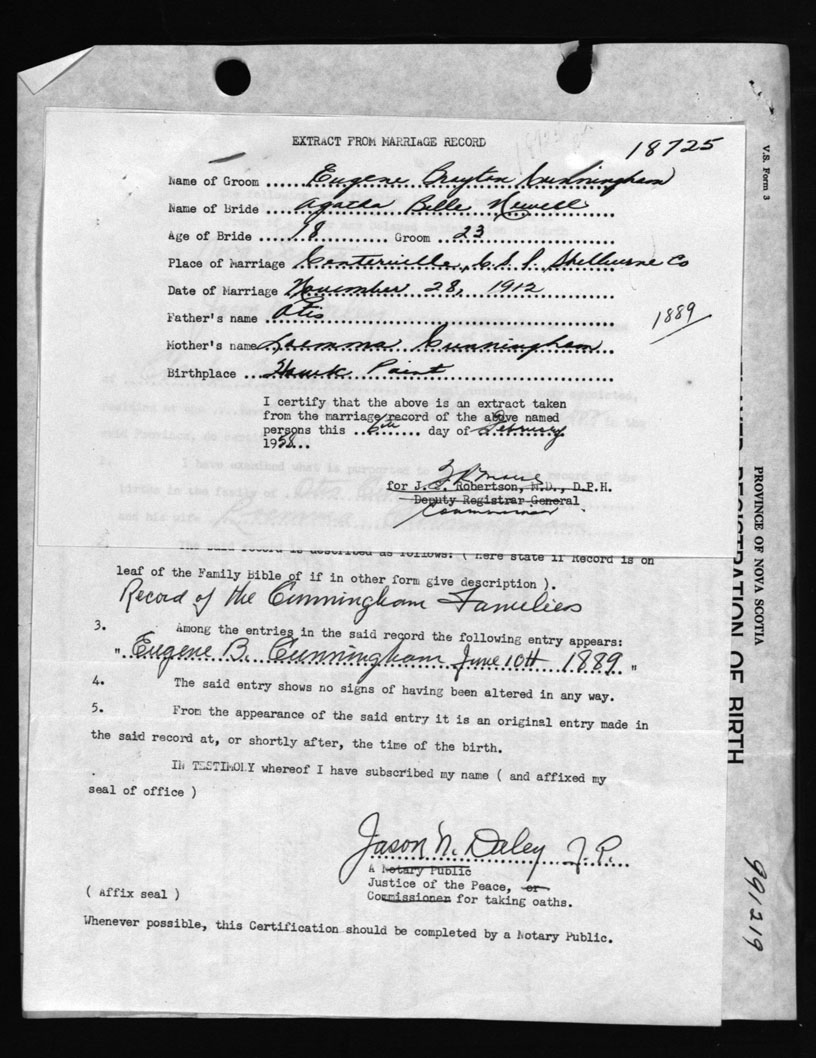 EXTRACT FROM MARRIAGE RECORD
18725
Name of Groom Eugene Crayton Cunningham
Name of Bride Agatha Belle Newell
Age of Bride 18 Groom 23
Place of Marriage Centerville, C.S.I. Shelburne Co
Date of Marriage November 28, 1912
Father's name Otis
1889
Mother's name Loemma Cunningham
Birthplace Hawk Point
I certify that the above is an extract taken
from the marriage record of the above named
persons this 6th day of February
1958
for J. S. Robertson, M.D., D.P.H.
Deputy Registrar General
The said record is described as follows: ( here state if Record is on
leaf of the Family Bible of if in other form give description ).
Record of the Cunningham Families
3. Among the entries in the said record the following entry appears:
" Eugene B. Cunningham June 10th 1889 "
4. The said entry shows no signs of having been altered in any way.
5. From the appearance of the said entry it is an original entry made in
the said record at, or shortly after, the time of the birth.
IN TESTIMOLY whereof I have subscribed my name ( and affixed my
seal of office )
Jason N. Daley J.P.
A Notary Public
Justice of the Peace, or
( Affix seal )
Commissioner for taking oaths.
Whenever possible, this Certification should be completed by a Notary Public.
V.S. Form 3
PROVINCE OF NOVA SCOTIA
REGISTRATION OF BIRTH
991219